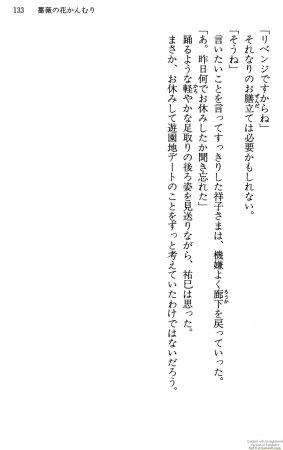 133　薔薇の花かんむり
「リベンジですからね」
それなりのお膳立ては必要かもしれない。
「そうね」
言いたいことを言ってすっきりした祥子さまは、機嫌よく廊下を戻っていった。
「あ。昨日何でお休みしたか聞き忘れた」
踊るような軽やかな足取りの後ろ姿を見送りながら、祐巳は思った。
まさか、お休みして遊園地デートのことをずっと考えていたわけではないだろう。